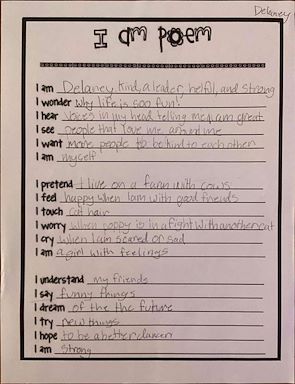 Delaney
I am poem
I am Delaney, kind, a leader, helful, and strong
I wonder why life is soo fun!
I hear voices in my head telling me I am great
I see people that love me around me
I want more people to be kind to each other
I am myself
I pretend I live on a farm with cows
I feel happy when I am with good friends
I touch cat hair
I worry when poppy is in a fight with another cat
I cry when I am scared or sad
I am a girl with feelings
I understand my friends
I say funny things
I dream of the the future
I try new things
I hope to be a better dancer
I am strong